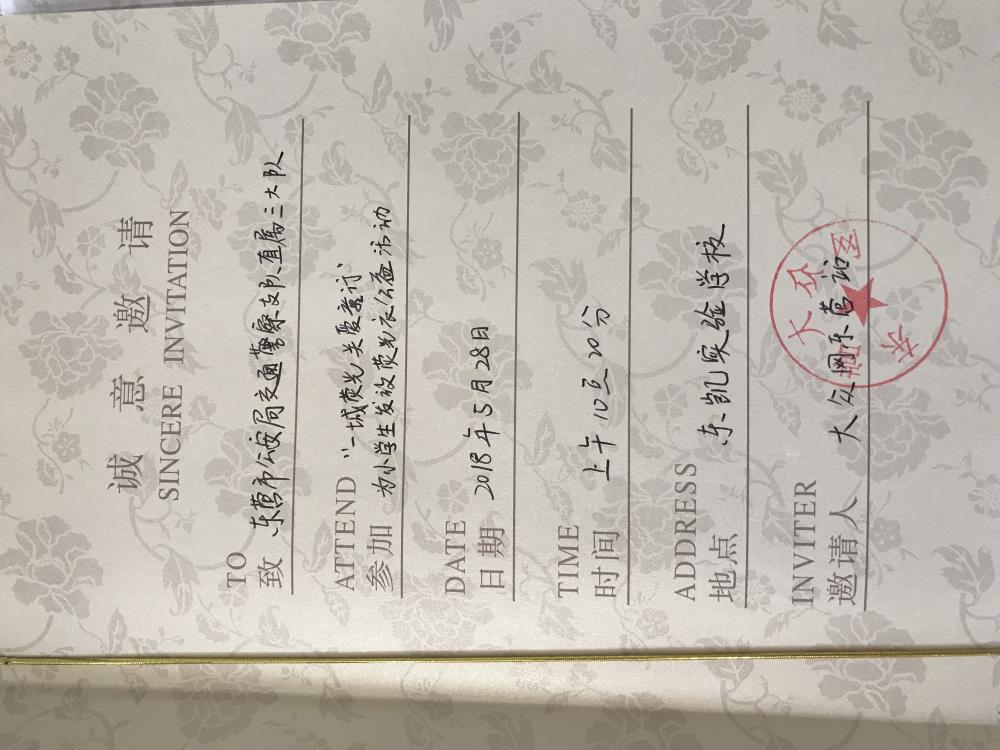 诚意邀请
SINCERE INVITATION
TO
致 东营市公安局交通警察支队直属三大队
ATTEND "一城荧光 关爱童讨"
参加 为小学生发放荧光衣公益活动
DATE
日期 2018年5月28日
TIME
时间 上午10点20分
ADDRESS
地点 东凯实验学校
INVITER
邀请人 大众网东营站
大众网
东